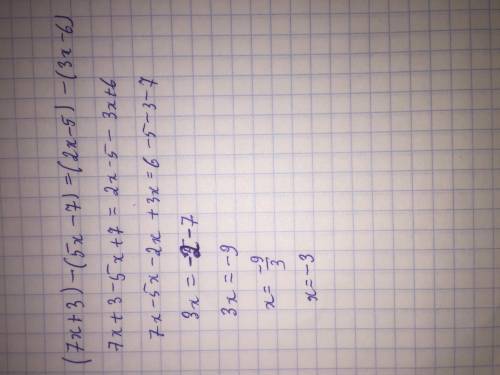 (7x+3)-(5x-7)=(2x-5)-(3x-6)
7x+3-5x+7=2x-5-3x+6
7x-5x-2x+3x=6-5-3-7
3x=-2-7
3x=-9
x=-9/3
x=-3